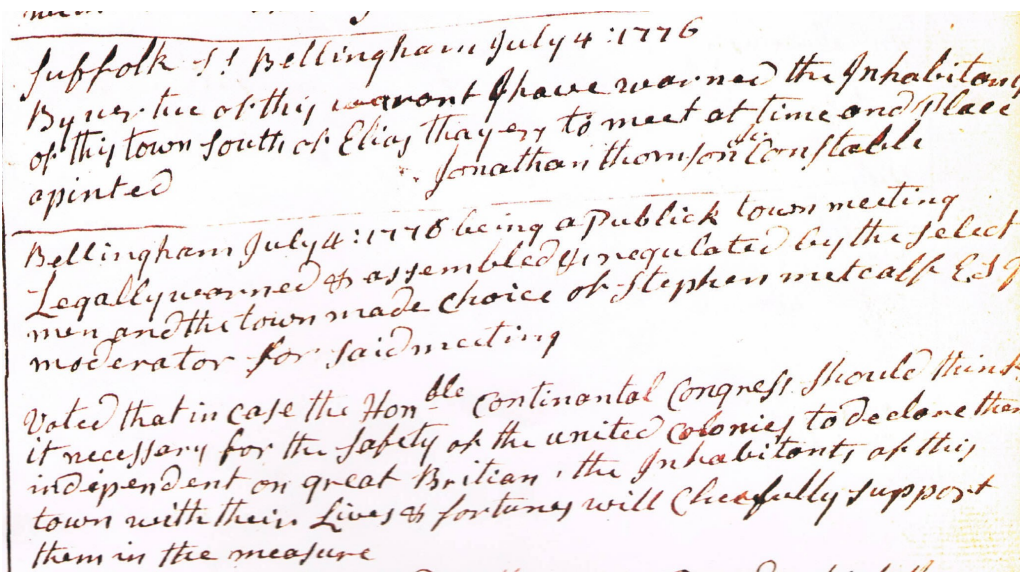 Suffolk Ss Bellingham July 4 : 1776
By vertue of this warant I have warned the Inhabitants
of this town south of Elias thayers to meet at time and Place
apinted Jonathan thomson Constable
Bellingham July 4 : 1776 being a Publick town meeting
Legally warned & assembled & regulated by the select
men and the town made Choice of Stephen metcalf Esq
moderator for said meeting
Voted that in case the Honble Continantal Congress should think
it necessary for the safety of the united Colonies to declare them
independent on great Britian , the Inhabitants of this
town with their Lives & fortunes will Cheafully support
them in the measure